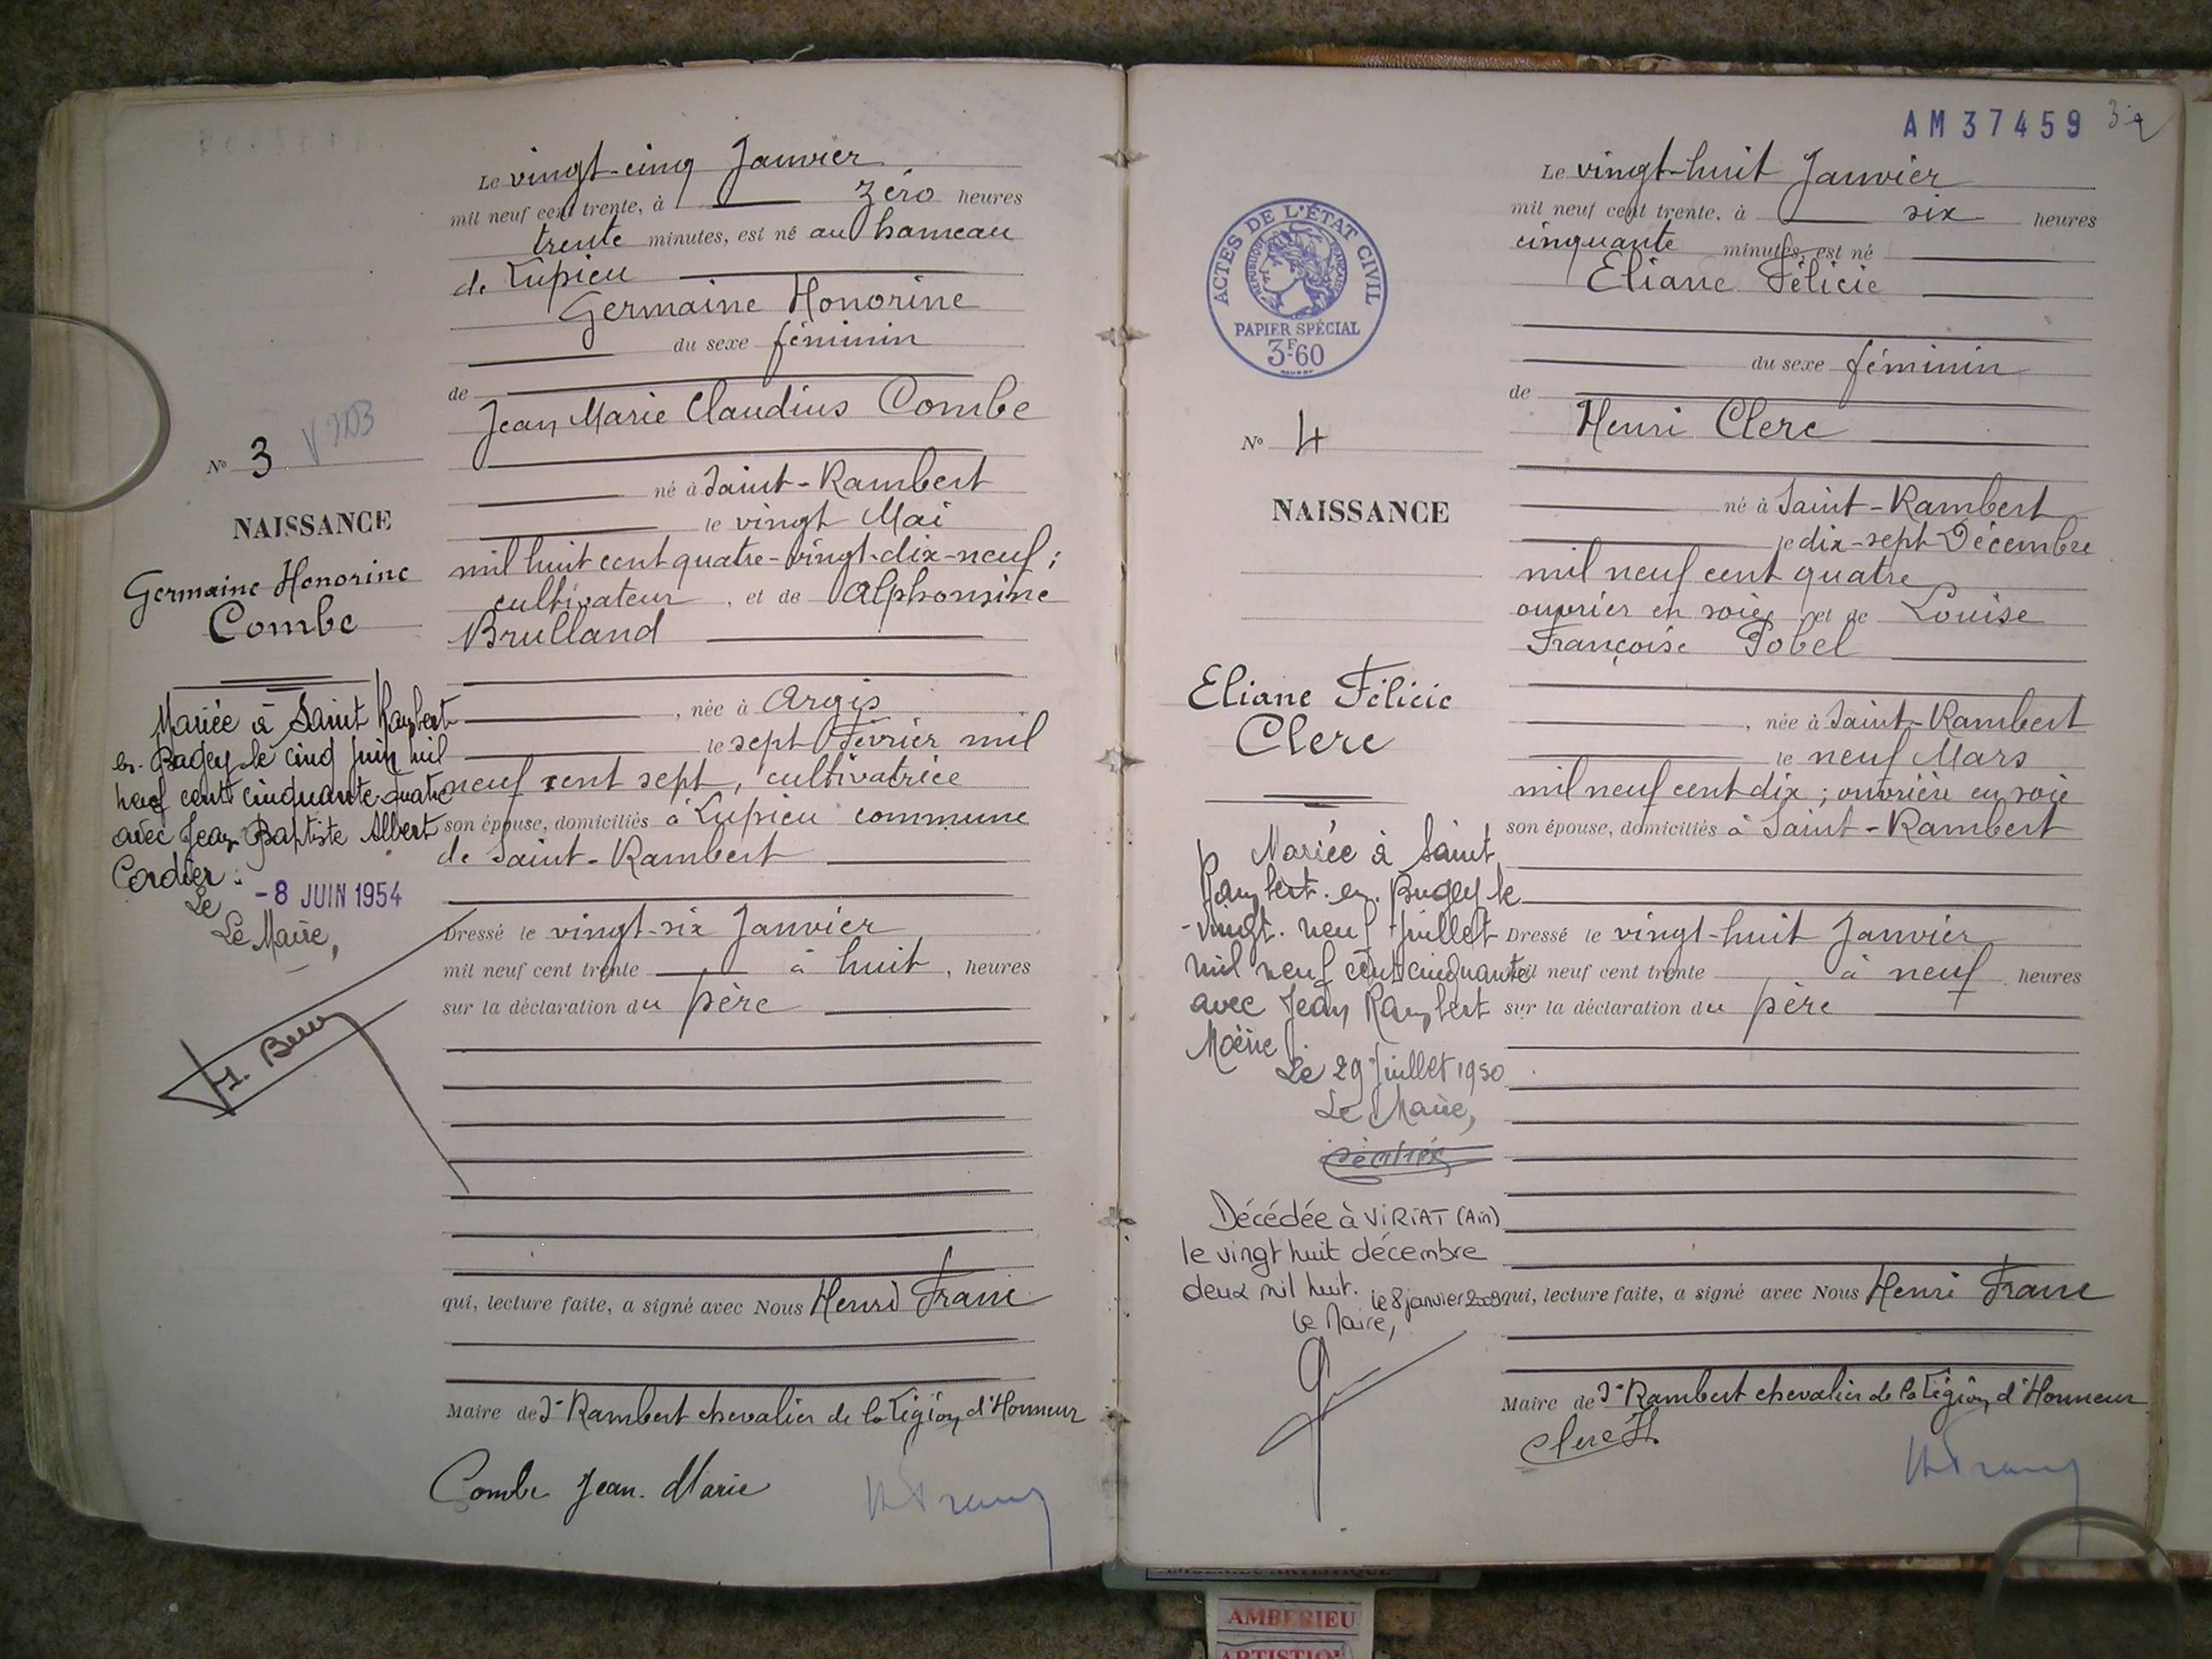 Le vingt-cinq Janvier
mil neuf cent trente, à zéro heures
trente minutes, est né au hameau
de Lupieu
Germaine Honorine
du sexe féminin
de
Jean Marie Claudius Combe
né à Saint-Rambert
le vingt Mai
mil huit cent quatre-vingt-dix-neuf ;
cultivateur, et de Alphonsine
Brulland
, née à Argis
le sept Février mil
neuf cent sept, cultivatrice
son épouse, domiciliés à Lupieu commune
de Saint-Rambert
Dressé le vingt-six Janvier
mil neuf cent trente à huit, heures
sur la déclaration du père
qui, lecture faite, a signé avec Nous Henri Franc
Maire de St Rambert chevalier de la Légion d'Honneur
Combe Jean. Marie
N° 3
NAISSANCE
Germaine Honorine
Combe
Mariée à Saint Rambert
en. Bugey le cinq juin mil
neuf cent cinquante-quatre
avec Jean Baptiste Albert
Cordier.
Le -8 JUIN 1954
Le Maire,
AM 37459
ACTES DE L'ÉTAT CIVIL
RÉPUBLIQUE FRANÇAISE
PAPIER SPÉCIAL
3F60
N° 4
NAISSANCE
Eliane Félicie
Clerc
Mariée à Saint
Rambert. en. Bugey le
vingt. neuf Juillet
mil neuf cent cinquante
avec Jean Rambert
Le 29 Juillet 1950
Le Maire,
Décédée à VIRIAT (Ain)
le vingt huit décembre
deux mil huit. le 8 janvier 2009
le Maire,
Le vingt-huit Janvier
mil neuf cent trente, à six heures
cinquante minutes, est né
Eliane Félicie
du sexe féminin
de
Henri Clerc
né à Saint-Rambert
le dix-sept Décembre
mil neuf cent quatre
ouvrier en soie, et de Louise
Françoise Pobel
, née à Saint-Rambert
le neuf Mars
mil neuf cent dix ; ouvrière en soie
son épouse, domiciliés à Saint-Rambert
Dressé le vingt-huit Janvier
mil neuf cent trente à neuf heures
sur la déclaration du père
qui, lecture faite, a signé avec Nous Henri Franc
Maire de St Rambert chevalier de la Légion d'Honneur
Clerc H.
AMBERIEU